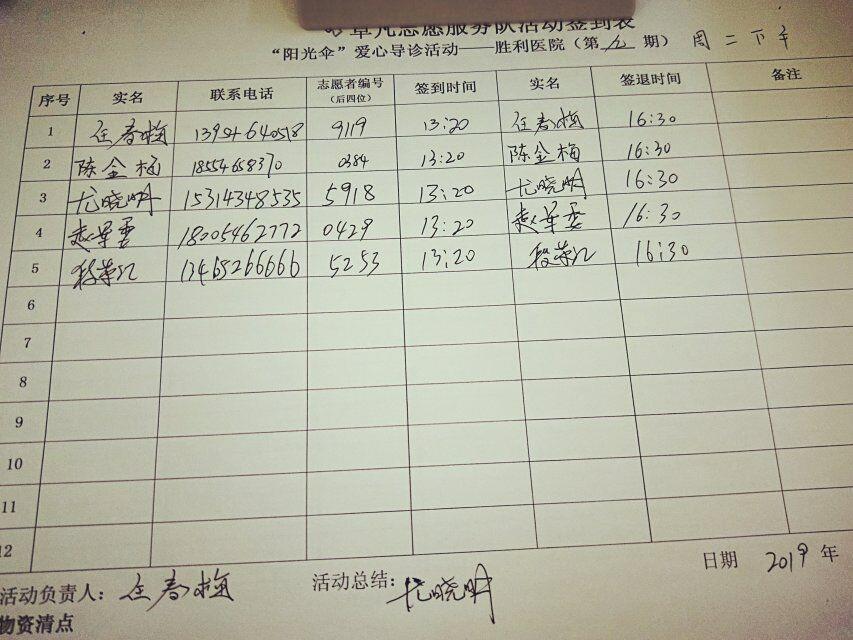 章兀志愿服务队活动签到表
“阳光伞”爱心导诊活动——胜利医院（第九期） 周二下午
序号 实名 联系电话 志愿者编号（后四位） 签到时间 实名 签退时间 备注
1 任春梅 13954640518 9119 13:20 任春梅 16:30
2 陈金梅 18554658370 0384 13:20 陈金梅 16:30
3 尤晓明 15314348535 5918 13:20 尤晓明 16:30
4 赵军委 18005462772 0429 13:20 赵军委 16:30
5 段荣江 13465266666 5253 13:20 段荣江 16:30
6
7
8
9
10
11
12
日期 2019 年
活动负责人： 任春梅 活动总结： 尤晓明
物资清点